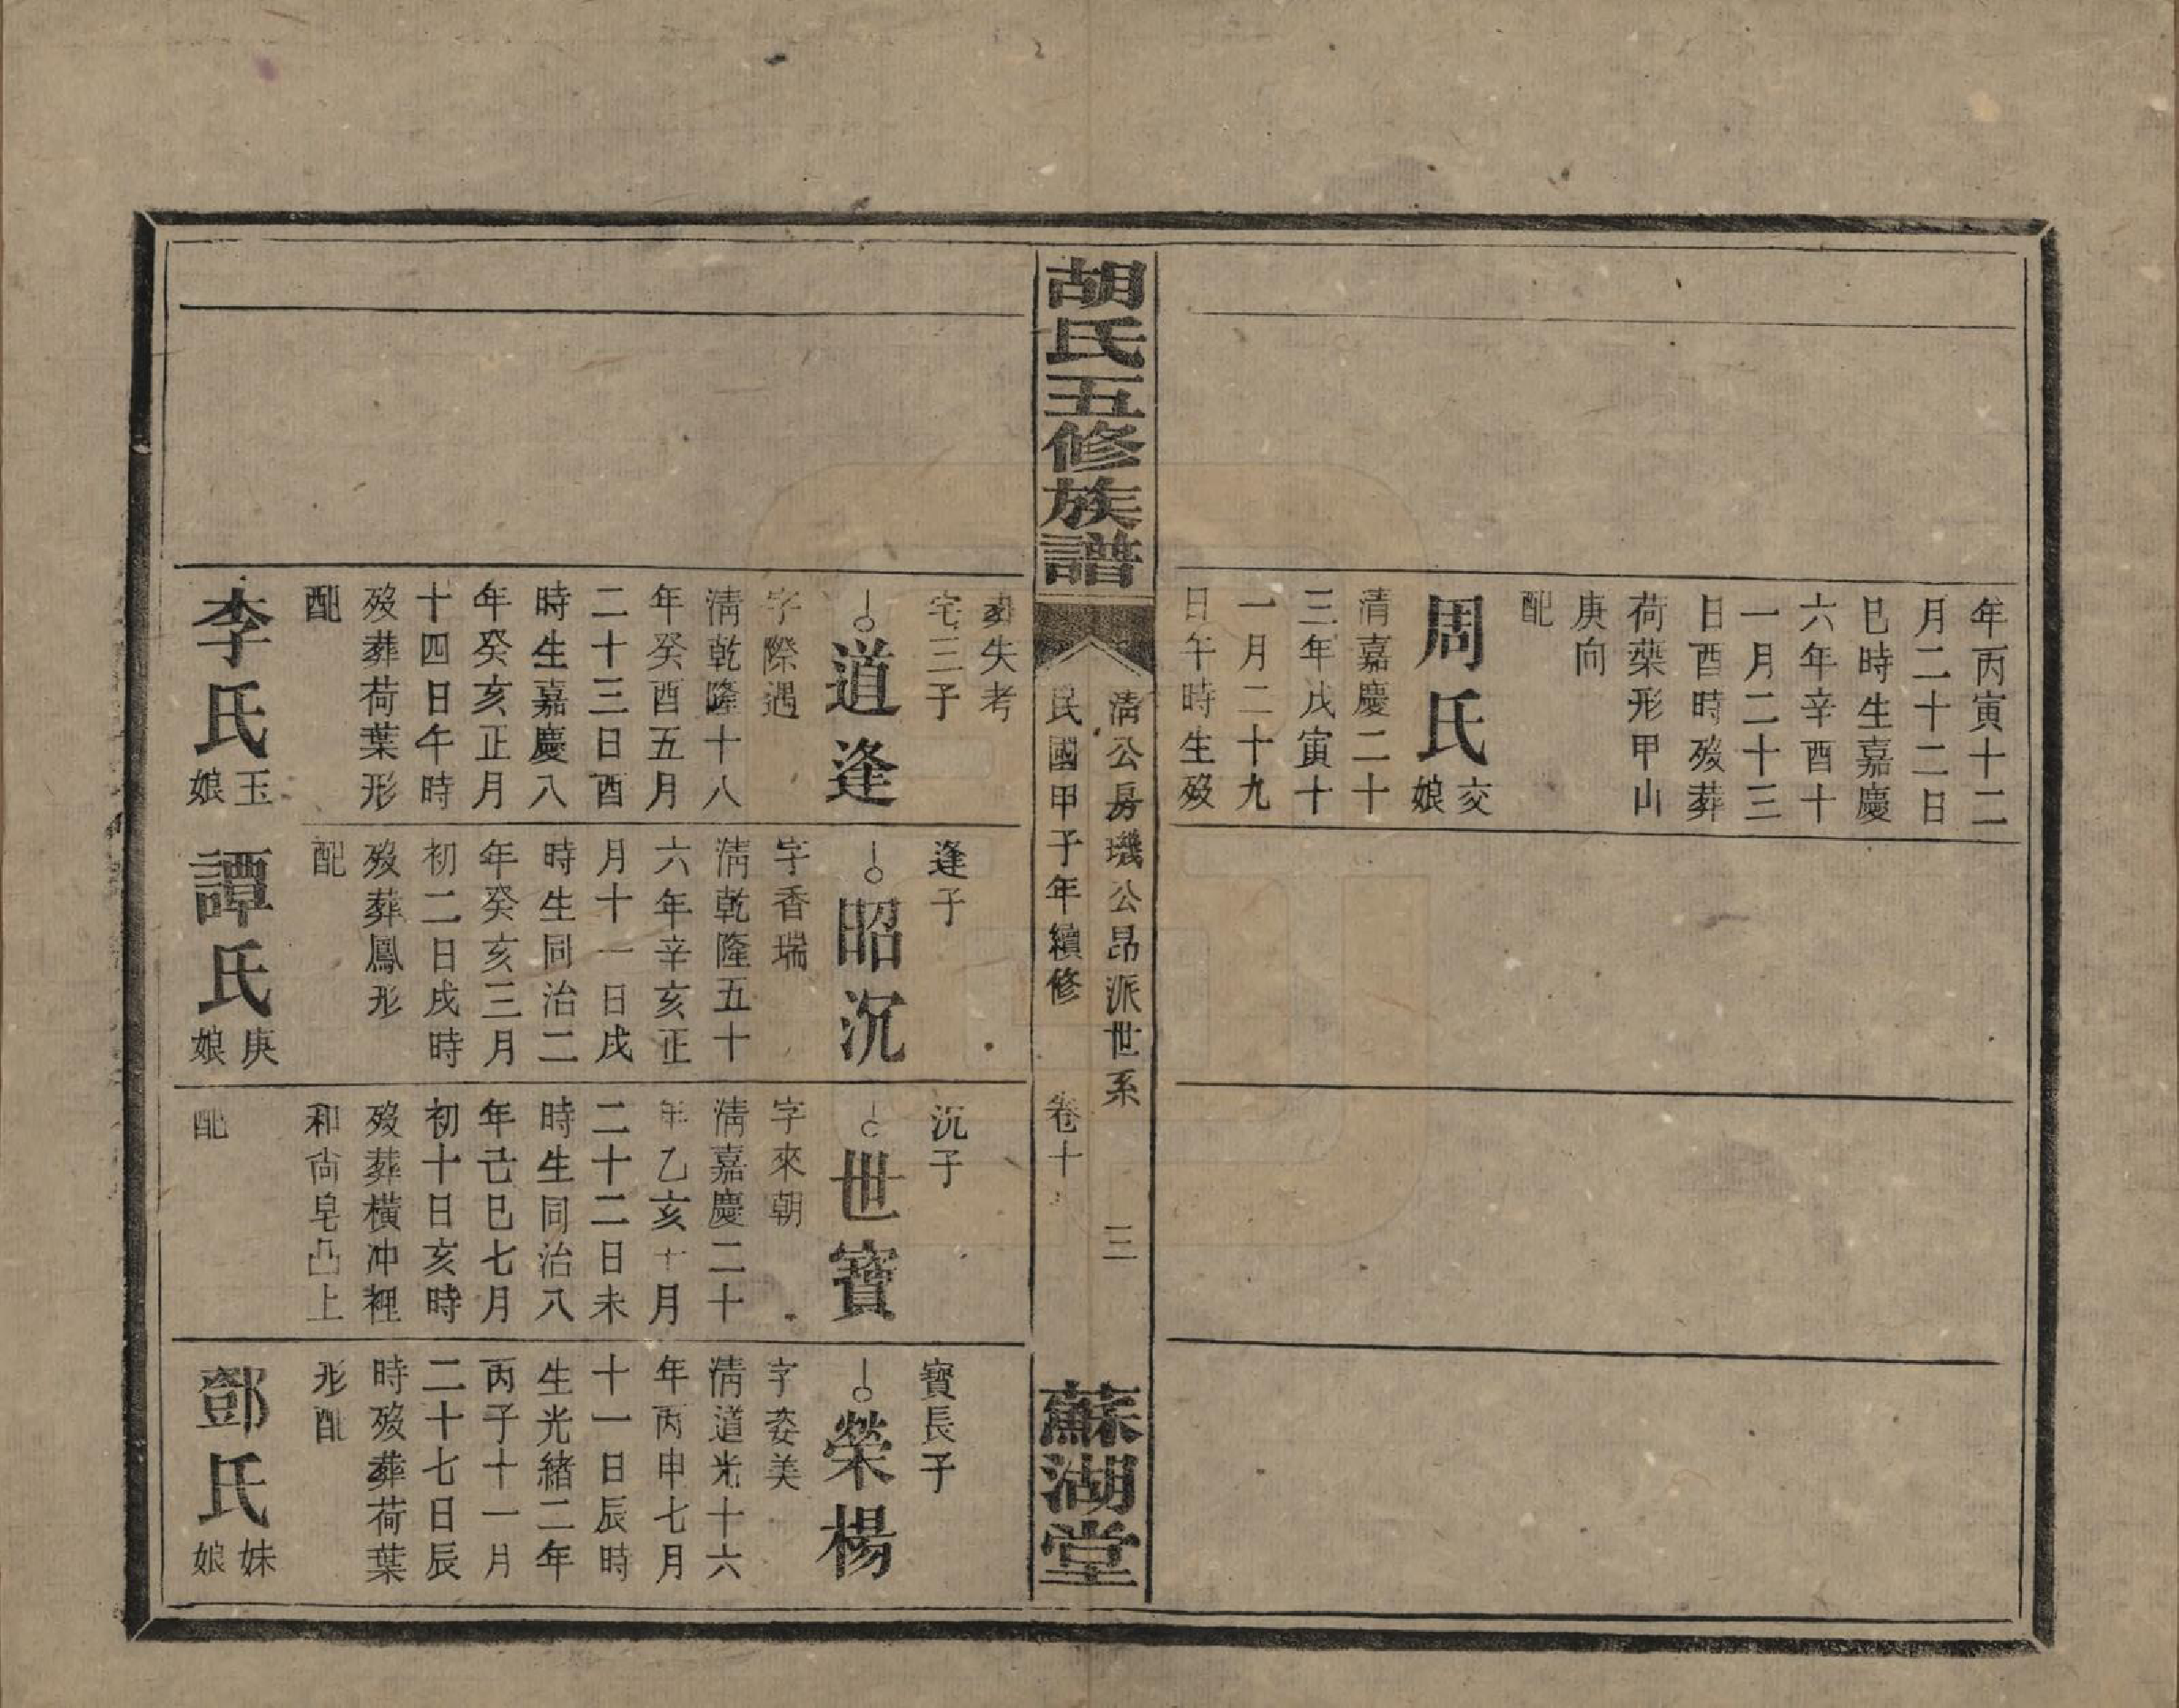 年丙寅十二
月二十二日
巳時生嘉慶
六年辛酉十
一月二十三
日酉時歿葬
荷葉形甲山
庚向
配
周氏
交娘
清嘉慶二十
三年戊寅十
一月二十九
日午時生歿
胡氏五修族譜
清公房璣公昂派世系
三
民國甲子年續修
卷十
蘇湖堂
失考
宅三子
道逢
字際遇
清乾隆十八
年癸酉五月
二十三日酉
時生嘉慶八
年癸亥正月
十四日午時
歿葬荷葉形
配
李氏
玉娘
逢子
昭沉
字香瑞
清乾隆五十
六年辛亥正
月十一日戌
時生同治二
年癸亥三月
初二日戌時
歿葬鳳形
配
譚氏
庚娘
沉子
世寶
字來朝
清嘉慶二十
年乙亥十月
二十二日未
時生同治八
年己巳七月
初十日亥時
歿葬橫冲裡
和尚皂凸上
配
寶長子
榮楊
字姿美
清道光十六
年丙申七月
十一日辰時
生光緒二年
丙子十一月
二十七日辰
時歿葬荷葉
形配
鄧氏
妹娘